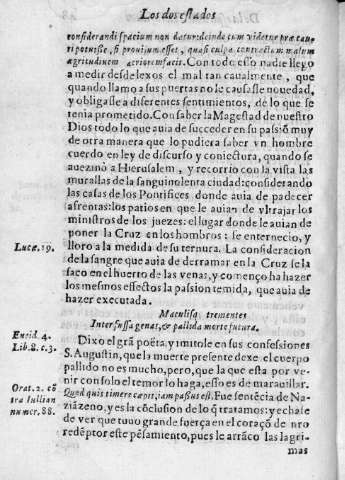 Los dos estados
considerandi spatium non datur: deinde cum videtur præcaueri potuisse, si prouisum esset, quasi culpa contractum malum
ægritudinem acriorem facit. Con todo esso nadie llego
a medir desde lexos el mal tan cabalmente, que
quando llamo a sus puertas no le causasse nouedad,
y obligasse a diferentes sentimientos, de lo que se
tenia prometido. Con saber la Magestad de nuestro
Dios todo lo que auia de succeder en su passiõ muy
de otra manera que lo pudiera saber vn hombre
cuerdo en ley de discurso y coniectura, quando se
auezinò a Hierusalem, y recorrio con la vista las
murallas de la sanguinolenta ciudad: considerando
las casas de los Pontifices donde auia de padecer
afrentas: los patios en que le auian de vltrajar los
ministros de los juezes: el lugar donde le auian de
poner la Cruz en los hombros: se enternecio, y
Lucæ. 19.
lloro a la medida de su ternura. La consideracion
de la sangre que auia de derramar en la Cruz se la
saco en el huerto de las venas, y començo ha hazer
los mesmos effectos la passion temida, que auia de
hazer executada.
Maculisq. trementes
Interfussa genas, & pallida morte futura.
Eneid. 4.
Lib. 8. c. 3.
Dixo el grã poëta, y imitole en sus confessiones
S. Augustin, que la muerte presente dexe el cuerpo
pallido no es mucho, pero, que la que esta por ve-
nir con solo el temor lo haga, esso es de marauillar.
Orat. 2. cõ
tra Iullian
numer. 88.
Quod quis timere cæpit, iam passus est. Fue sentẽcia de Na-
ziãzeno, y es la cõclusion de lo q̃ tratamos: y echase
de ver que tuuo grande fuerça en el coraçõ de nr̃o
redẽptor este pẽsamiento, pues le arrãco las lagri-
mas